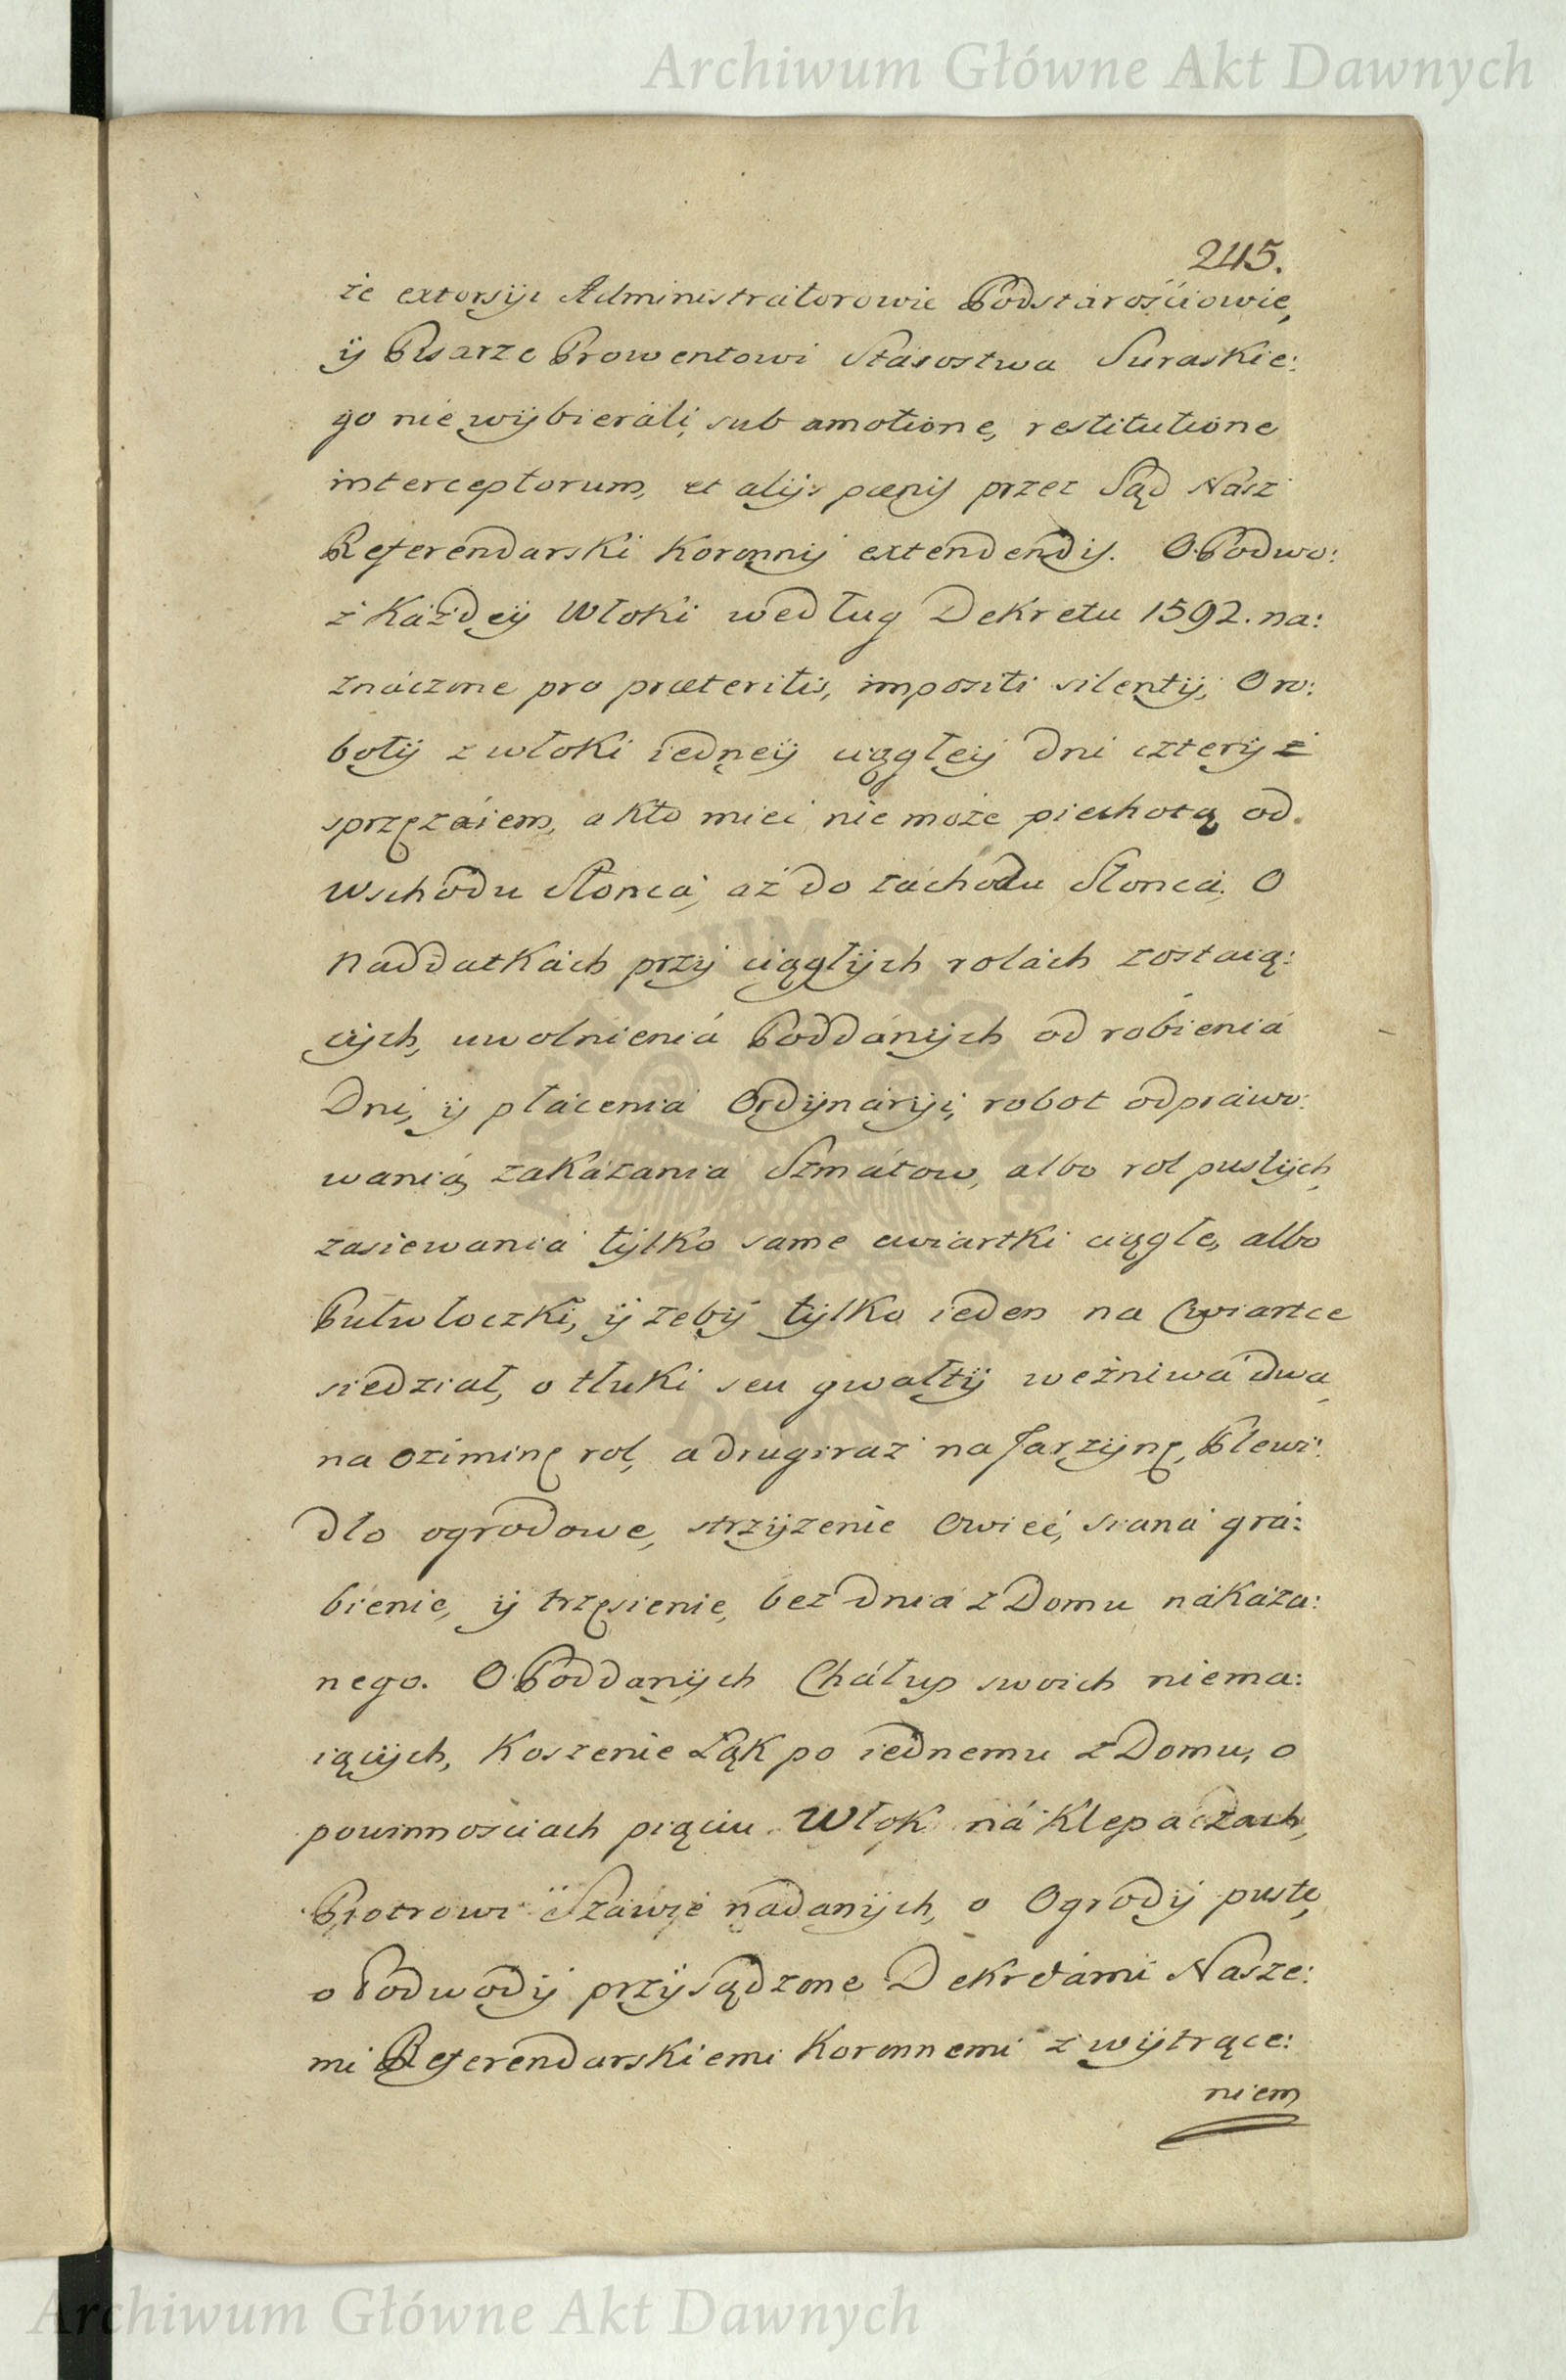 Archiwum Główne Akt Dawnych
245.
że extorsyi Administratorowie Podstarościowie,
ÿ Pisarze Prowentowi Starostwa Suraskie:
go nie wÿbierali, sub amotione, restitutione
interceptorum, et alijs pœnis przez Sąd Nász
Referendarski Koronnÿ extendendis. O Podwo:
z Każdeÿ Włoki według Dekretu 1592. na:
znáczone pro præteritis, impositi silentij, O ro:
botÿ z włoki iedneÿ ciągłeÿ dni czterÿ z
sprzężáiem, a kto mieć nie może piechotą od
wschodu Słonca, aż do záchodu Słonca. O
náddatkách przÿ ciągłÿch rolách zostaią:
cÿch, uwolnieniá Poddánÿch od robieniá
Dni, ÿ płáceniá Ordÿnárÿi, robot odpráwo:
waniá, zakázania Szmátow, albo rol pustÿch,
zasiewania tÿlko same cwiartki ciągłe, albo
Pułwłoczki, ÿ żebÿ tÿlko ieden na Cwiartce
siedział, o tłuki seu gwałtÿ we żniwá dwa
na oziminę rol, a drugi raz na Jarzÿnę, Plewi:
dło ogrodowe, strzÿżenie Owiec, siana grá:
bienie, ÿ trzęsienie, bez dnia z Domu nákáza:
nego. O Poddanÿch Cháłup swoich niema:
iącÿch, Koszenie Łąk po iednemu z Domu, o
powinnościach piąciu Włok ná Klepáczách,
Piotrowi Száwie nádanÿch, o Ogrodÿ puste,
o Podwodÿ przÿsądzone Dekretámi Nasze:
mi Referendarskiemi Koronnemi z wÿtrące:
niem
Archiwum Główne Akt Dawnych